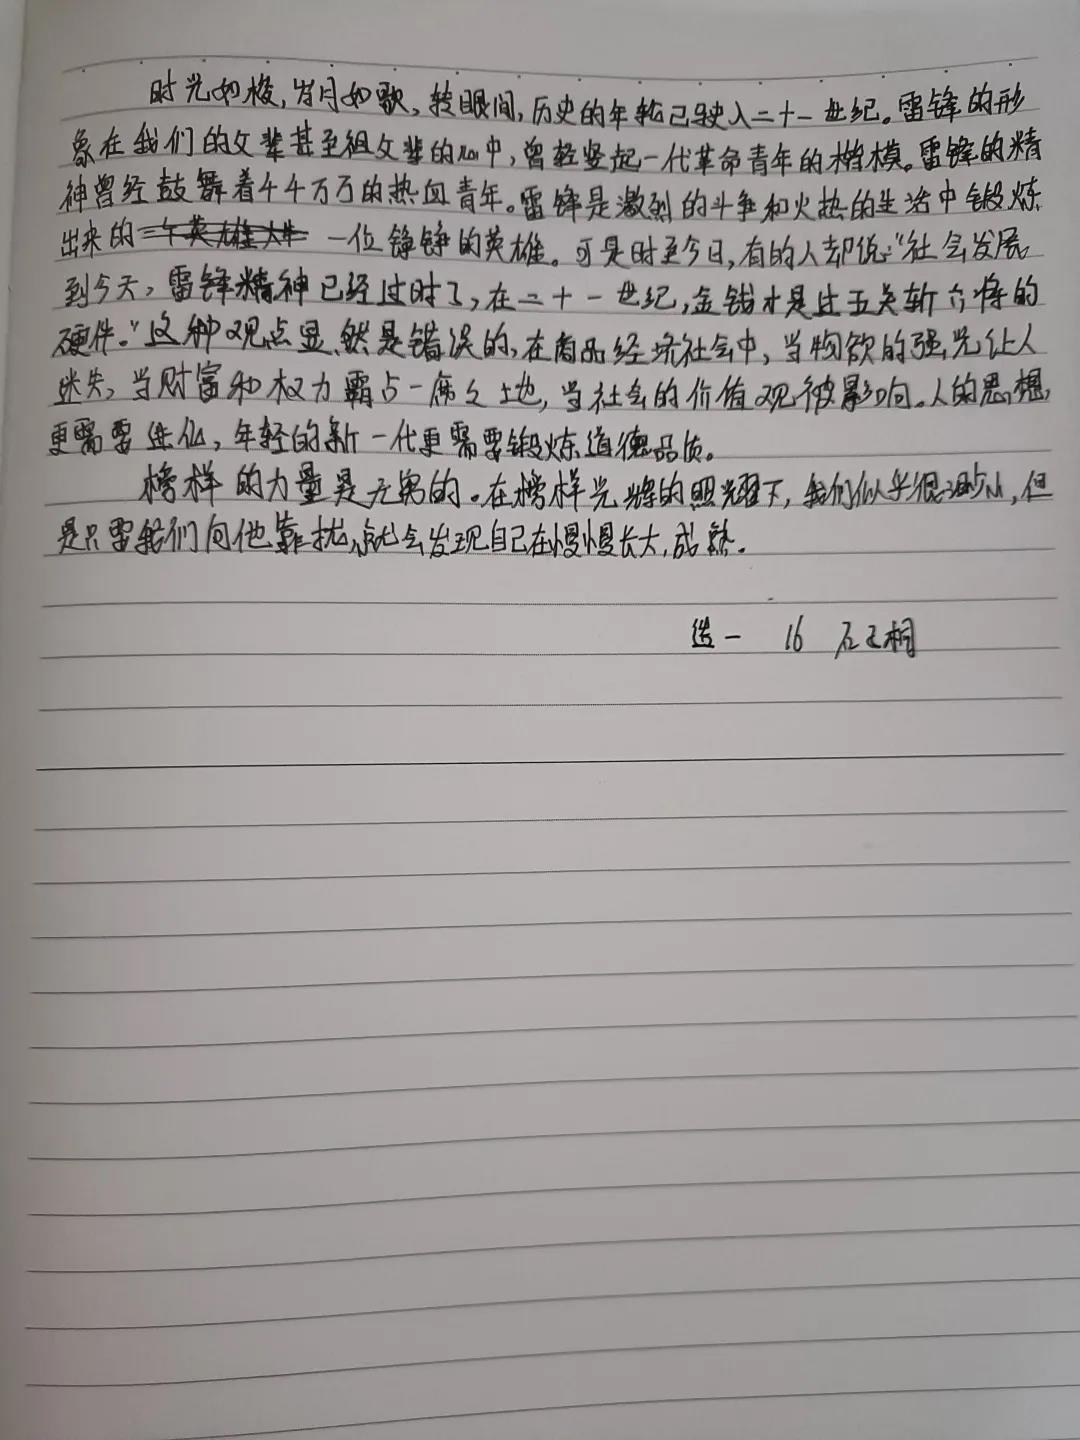 时光如梭,岁月如歌,转眼间,历史的年轮已驶入二十一世纪。雷锋的形
象在我们的父辈甚至祖父辈的心中,曾经竖起一代革命青年的楷模。雷锋的精
神曾经鼓舞着千千万万的热血青年。雷锋是激烈的斗争和火热的生活中锻炼
出来的一位铮铮的英雄。可是时至今日,有的人却说:“社会发展
到今天,雷锋精神已经过时了,在二十一世纪,金钱才是过五关斩六将的
硬件。”这种观点显然是错误的,在商品经济社会中,当物欲的强光让人
迷失,当财富和权力霸占一席之地,当社会的价值观被影响。人的思想,
更需要进化,年轻的新一代更需要锻炼道德品质。
榜样的力量是无穷的。在榜样光辉的照耀下,我们似乎很渺小,但
是只需我们向他靠拢,就会发现自己在慢慢长大,成熟。
选一 16 石